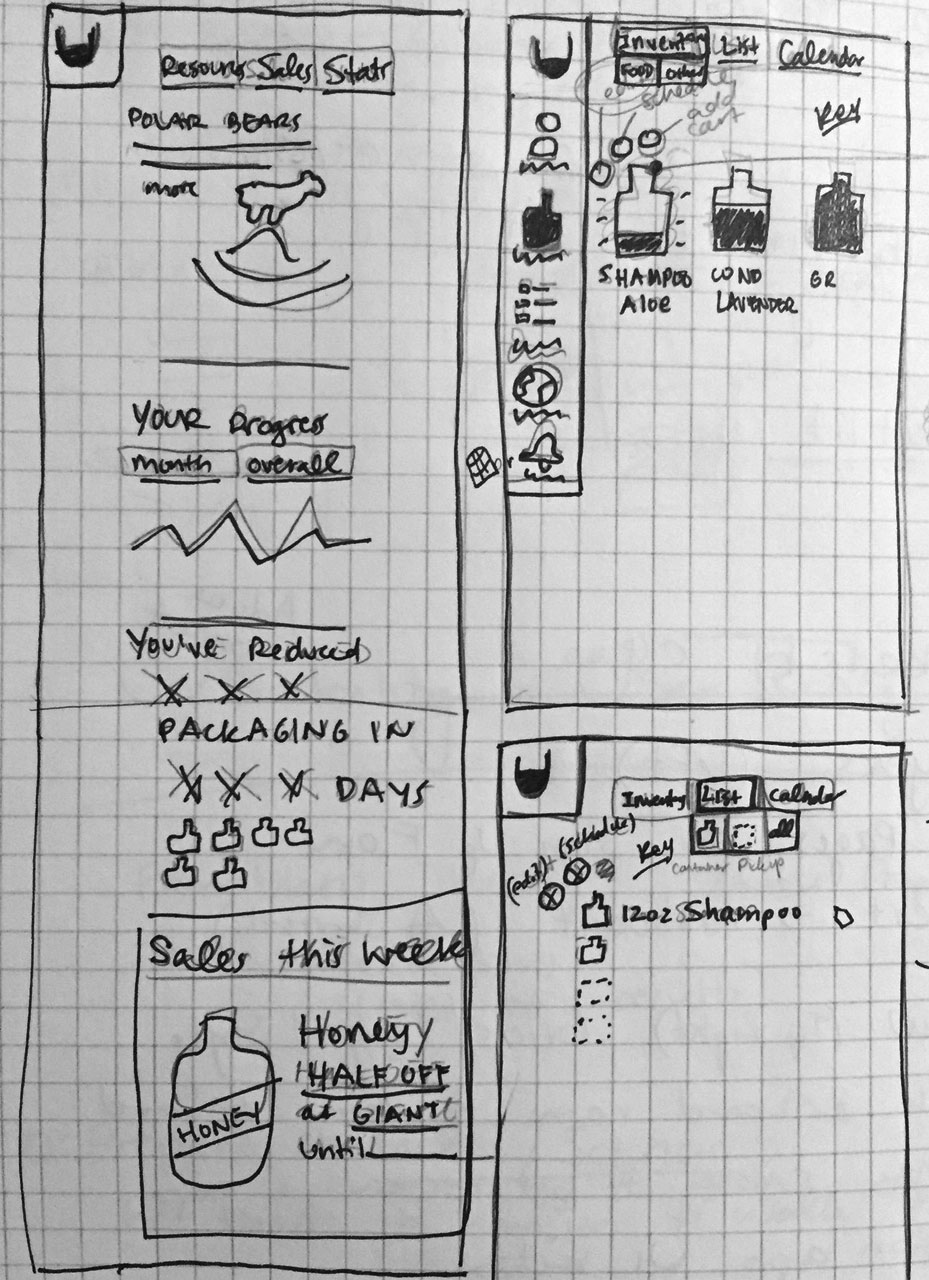 Resources Sales Stats
POLAR BEARS
more
YOUR Progress
month overall
You've Reduced
XXX
PACKAGING IN
XXX DAYS
Sales this week
HONEY
Honey
HALF OFF
at GIANT
until
Inventory List Calendar
FOOD other
schedule
add
cart
Key
SHAMPOO
Aloe
COND
LAVENDER
GR
Inventory List Calendar
all
(schedule)
Key
Container Pickup
(edit)
12oz Shampoo